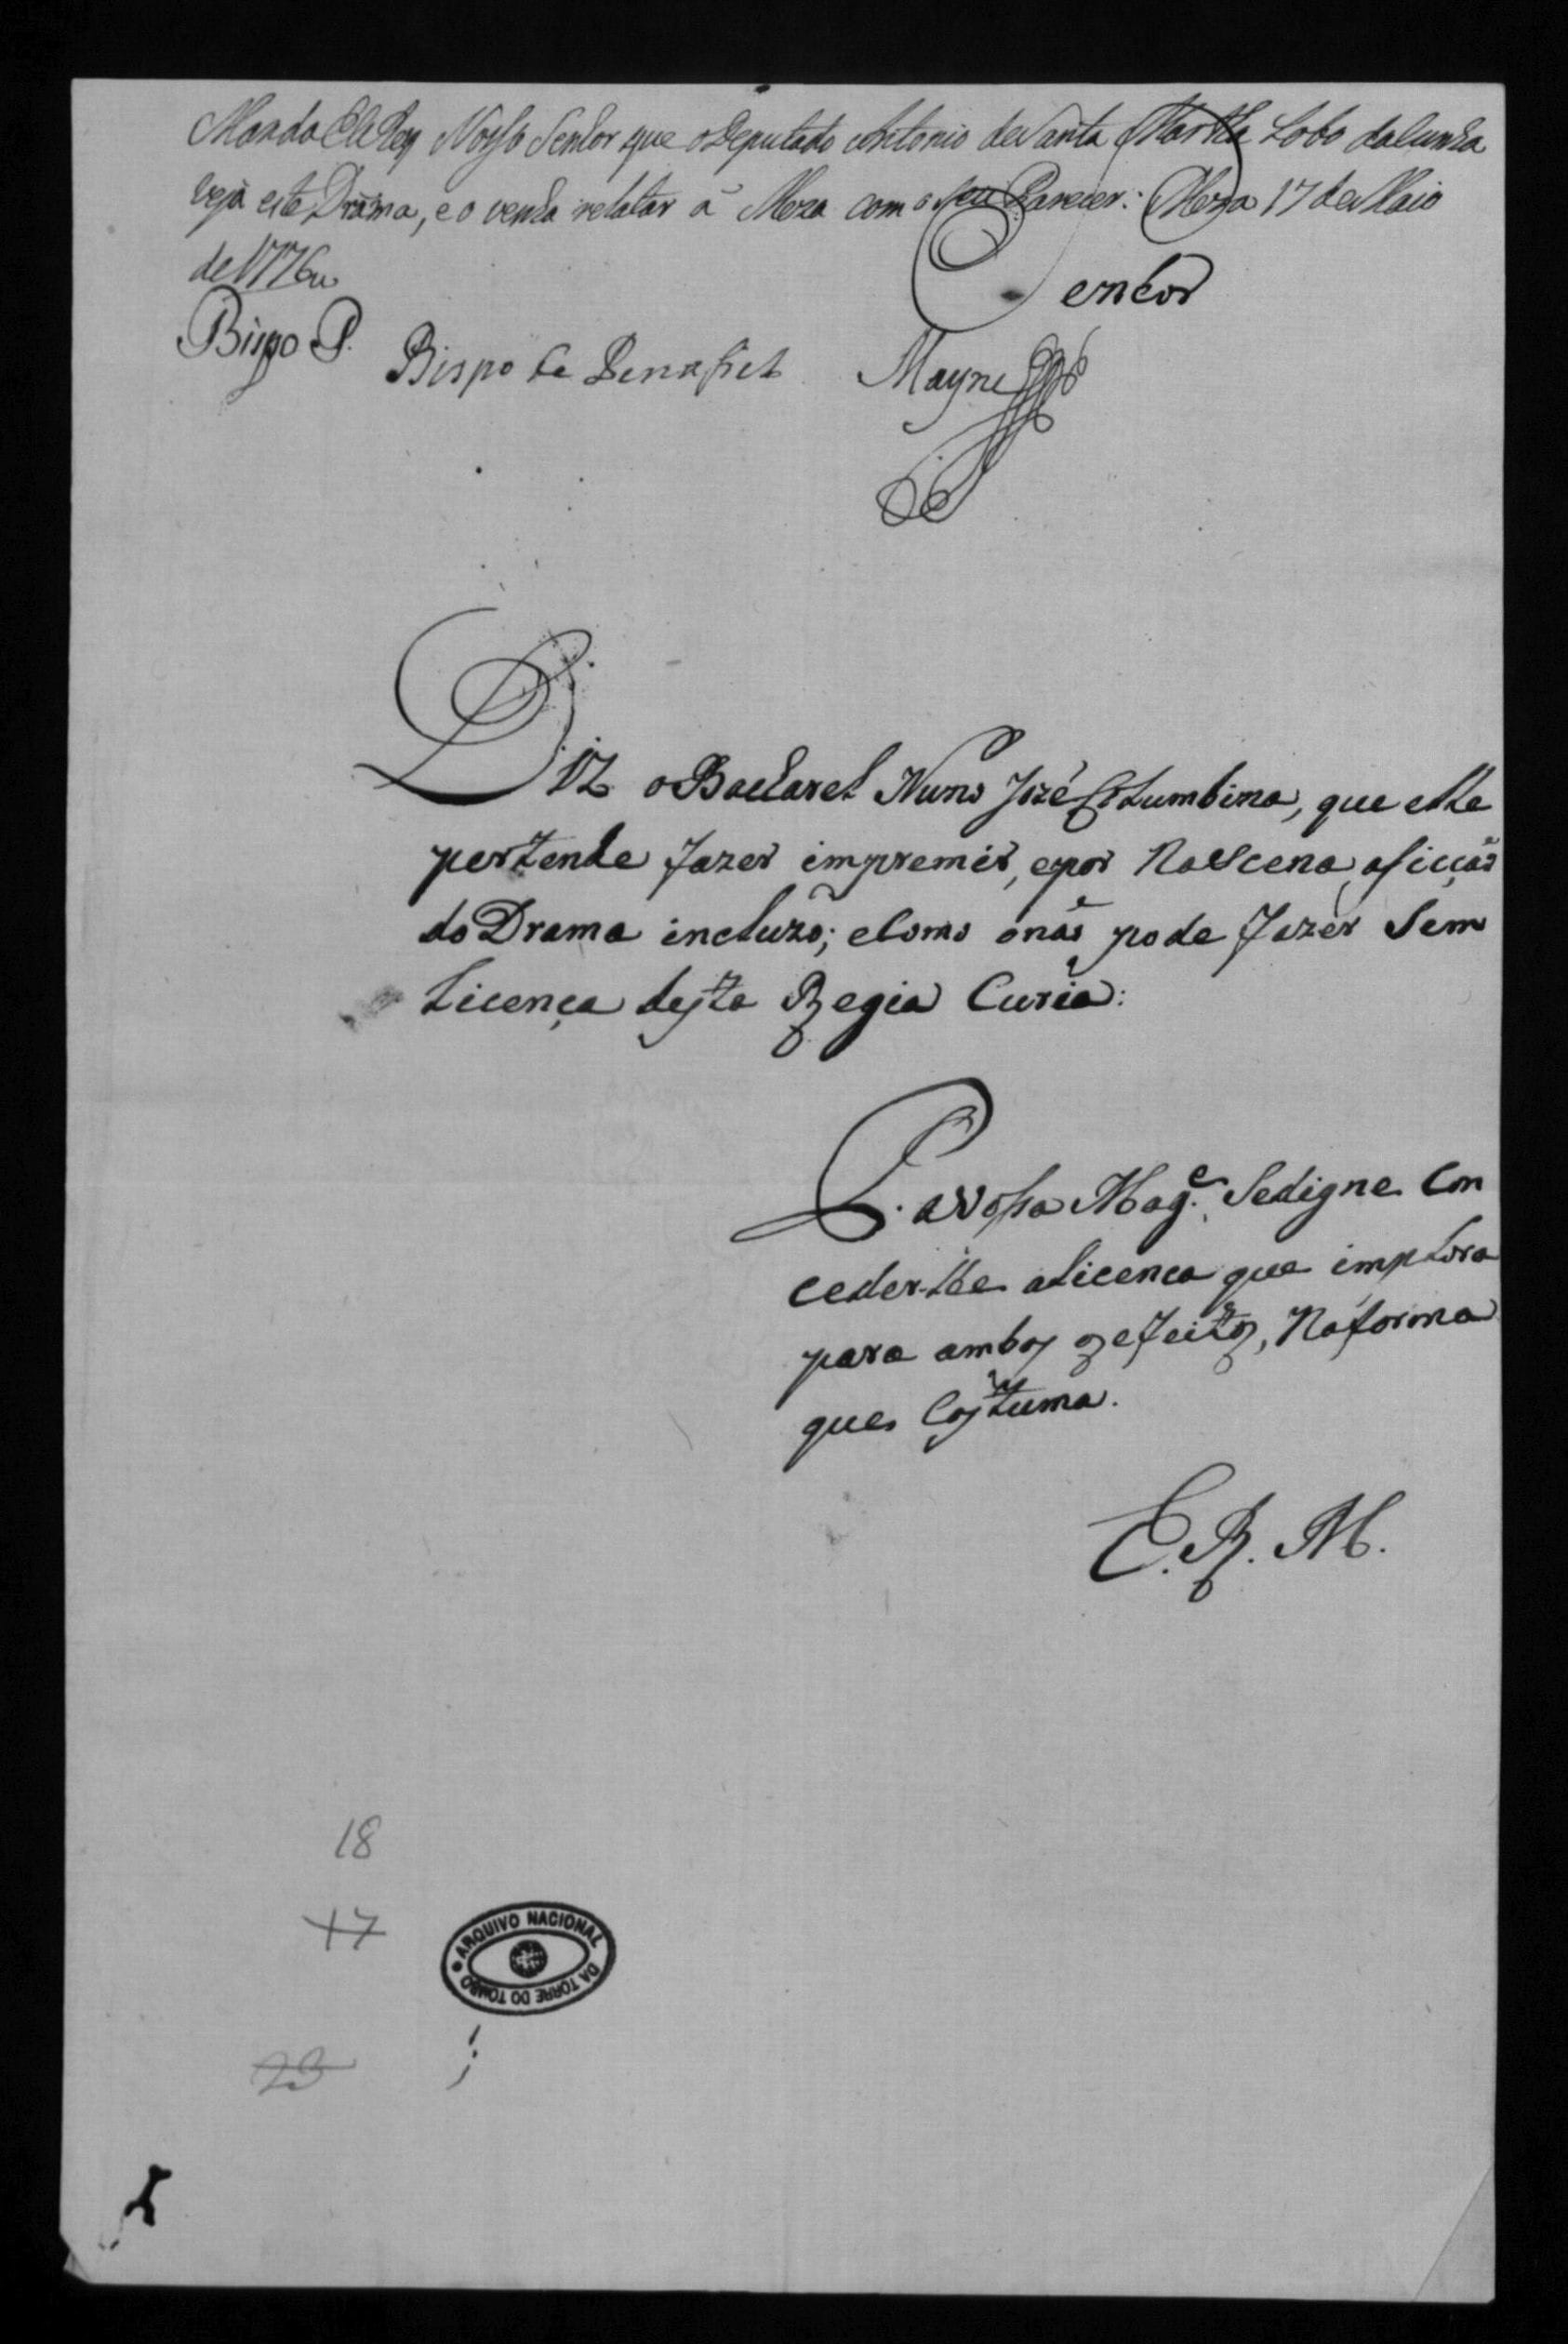 Manda ElRey Nosso Senhor que o Deputado Antonio de Santa Martha Lobo da Cunha
veja este Drama, e o venha relatar á Meza com o seu Parecer: Meza 17 de Maio
de 1776
Senhor
Bispo P. Bispo de Penafiel Mayne
Diz o Bacharel Nuno Jozé Columbina, que elle
pertende fazer impremir, e por na Scena, a ficçaõ
do Drama incluzo; e como o naõ pode fazer Sem
Licença desta Regia Curia:
P. a Vossa Mag.e Se digne Con
ceder-lhe a licença que implora
para ambos os efeitos, Na forma
que Costuma.
E. R. M.
18
17
ARQUIVO NACIONAL DA TORRE DO TOMBO
23